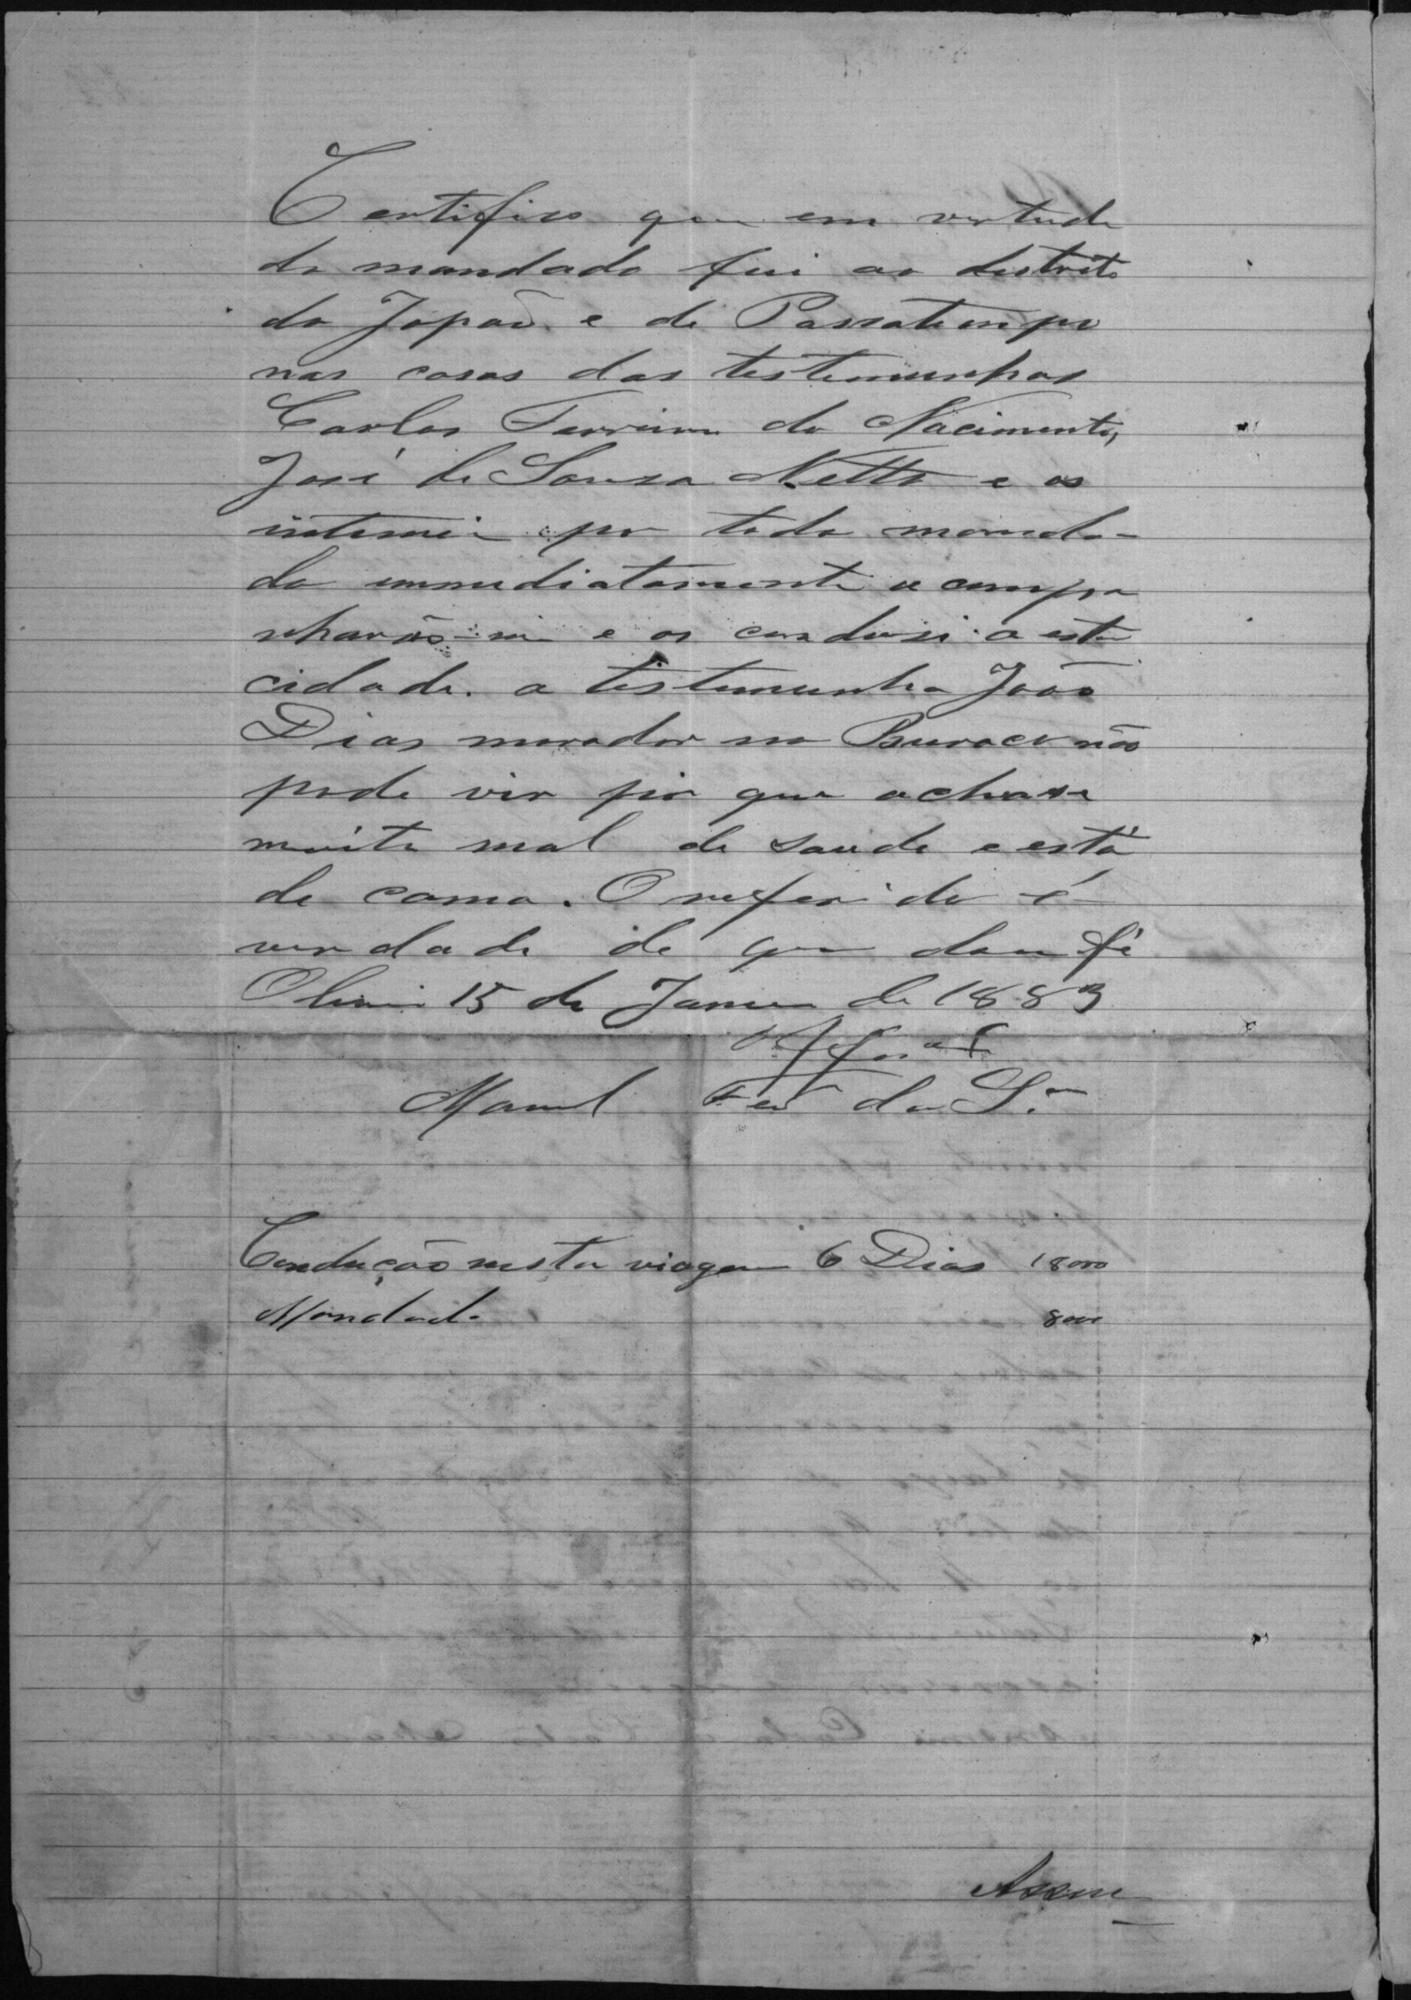 Certifico que em vertude
do mandado fui ao destrito
do Japaõ e de Passatempo
nas casas das testemunhas
Carlos Ferreira do Nacimento,
José de Souza Netto e os
intimei por todo manda-
do immediatamente acompa
nharão-me e os condusi a esta
cidade. a testemunha João
Dias morador no Buraco não
pode vir por que achase
muito mal de saude e está
de cama. O referido é
verdade de que dou fé
Olivei 15 de Janeiro de 1883
Manoel Fer da S.ª
Condução nesta viagem 6 Dias 18000
Mandado 8000